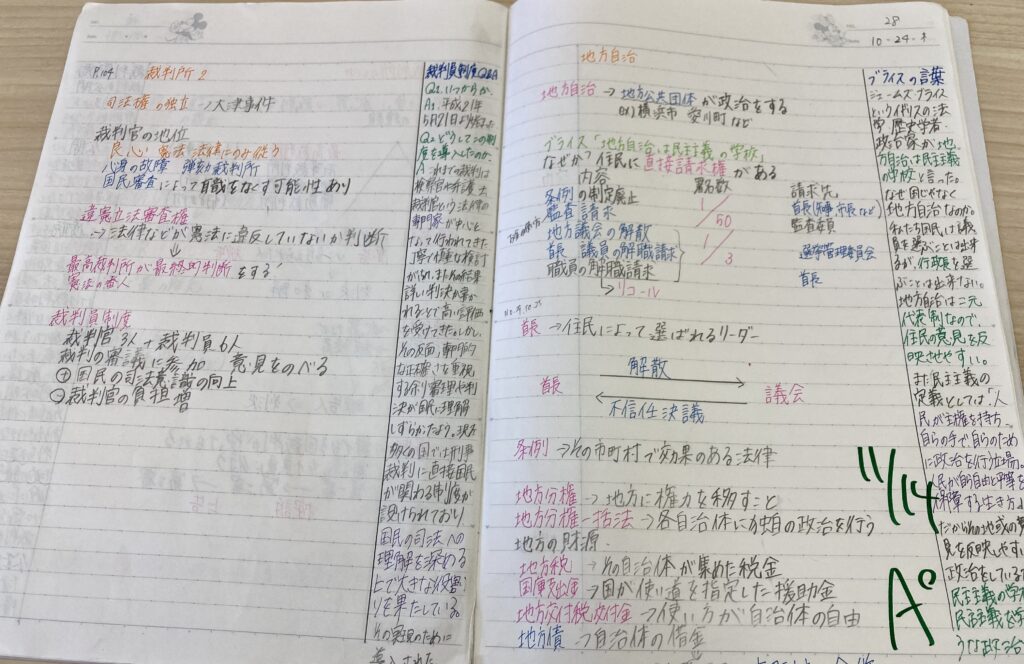 P.104 裁判所2
司法権の独立→大津事件
裁判官の地位
良心 憲法 法律にのみ従う
心身の故障 弾劾裁判所
国民審査によって職をなくす可能性あり
違憲立法審査権
→法律などが憲法に違反していないか判断
最高裁判所が最終的判断をする
憲法の番人
裁判員制度
裁判官3人+裁判員6人
裁判の審議に参加 意見をのべる
⊕国民の司法意識の向上
⊖裁判官の負担増
裁判員制度Q&A
Q1.いつからか.
A1.平成21年
5月21日から
Q2.どうしてこの制
度を導入したのか.
A.これまでの裁判は
検察官や弁護士
裁判官という法律の
専門家が中心と
なって行われてきた
丁寧で慎重な検討
がなされ、またその結果
詳しい判決が書か
れることで高い評価
を受けてきた。しかし、
その反面、専門的
な正確さを重視
する余り審理や判
決が国民に理解
しずらかったよう。現在
多くの国では刑事
裁判に直接国民
が関わる制度が
設けられており
国民の司法への
理解を深める
上で大きな役割
りを果たしている。
そのために
導入された
28
10-24-木
地方自治
地方自治→地方公共団体が政治をする
ex)横浜市 など
ブライス「地方自治は民主主義の学校」
なぜか?住民に直接請求権がある
内容 署名数 請求先
条例の制定廃止 1/50 首長(知事,市長など)
監査請求 監査委員
地方議会の解散 1/3
首長 議員の解職請求 選挙管理委員会
職員の解職請求 首長
→リコール
首長→住民によって選ばれるリーダー
解散
首長 議会
不信任決議
条例→その市町村で効果のある法律
地方分権→地方に権力を移すこと
地方分権一括法→各自治体に独自の政治を行う
地方の財源
地方税→その自治体が集めた税金
国庫支出金→国が使い道を指定した援助金
地方交付税交付金→使い方が自治体の自由
地方債→自治体の借金
ブライスの言葉
ジェームズ・ブライス
というイギリスの法
学,歴史学者.
政治家が「地
方自治は民主主義
の学校」と言った。
なぜ国じゃなく
地方自治なのか。
私たち国民は議
員を選ぶことは出来
るが、行政長を選
ぶことは出来ない。
地方自治は二元
代表制なので、
住民の意見を反
映させやすい。
また民主主義の
定義としては「人
民が主権を持ち.
自らの手で、自らのため
に政治を行う立場。
人民が自由と平等を
保障する生き方」
だからその地域の意
見を反映しやすい
政治をしている
民主主義の学
民主主義を学
うな政治
11/14
A°